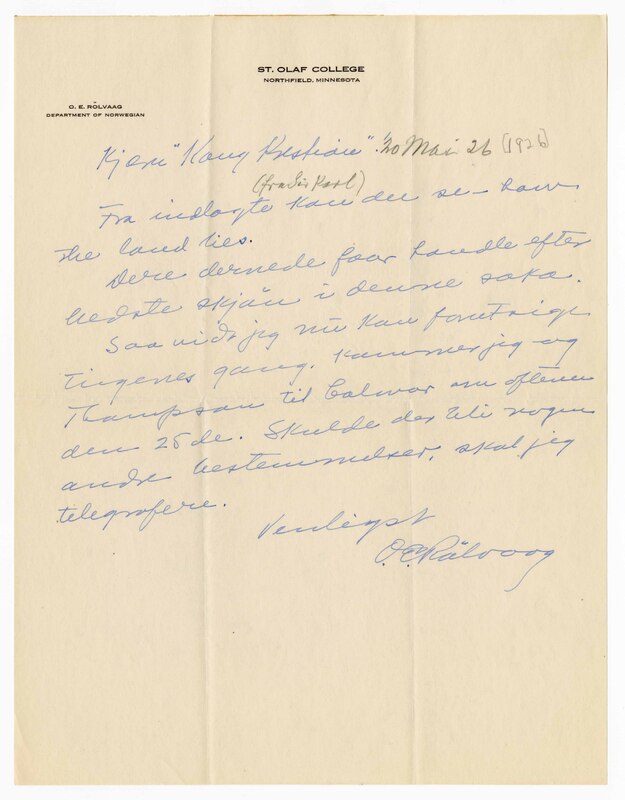 ST. OLAF COLLEGE
NORTHFIELD, MINNESOTA
O. E. RÖLVAAG
DEPARTMENT OF NORWEGIAN
Kjære "Kong Kristian"! 20 Mai 26 [1926]
Fra indlagte kan du se – how
the land lies.
Dere dernede faar handle efter
bedste skjön i denne saka.
Saa vidt jeg nu kan forutsige
tingenes gang, kommer jeg og
Thompson til Calmar om aftenen
den 25de. Skulde der bli nogen
andre bestemmelser, skal jeg
telegrafere.
Venligst
O.E. Rölvaag